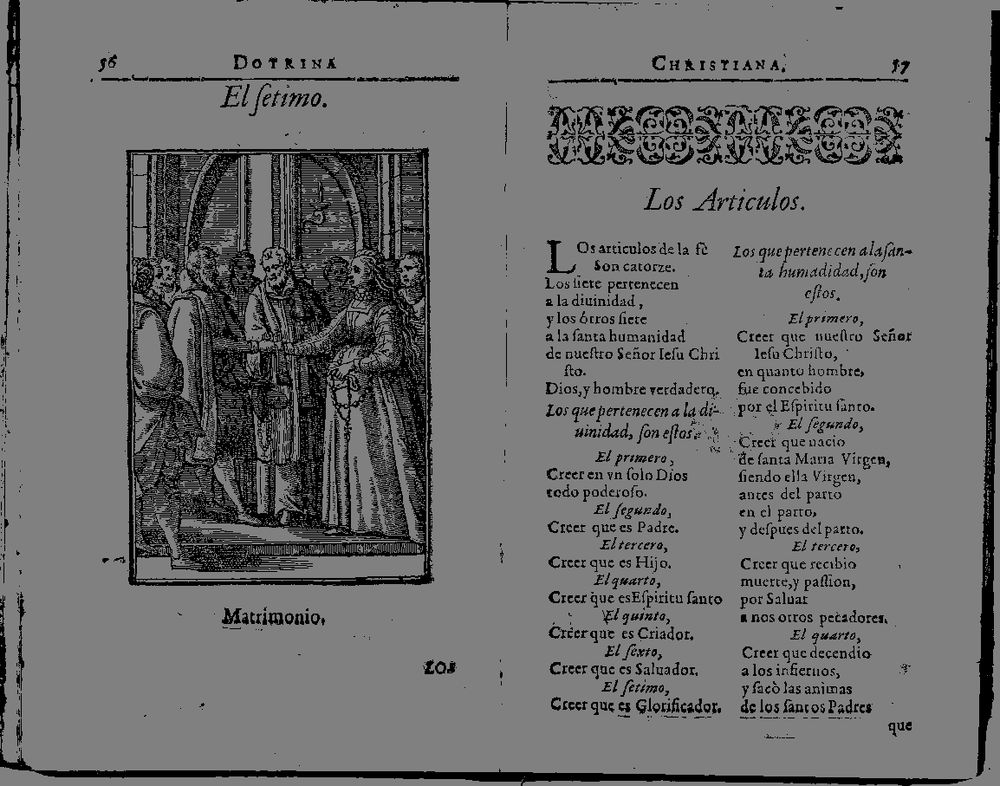 36
DOTRINA
El ſetimo.
Matrimonio,
LOS
CHRISTIANA.
37
Los Articulos.
LOs articulos de la fè
Son catorze.
Los ſiete pertenecen
a la diuinidad,
y los òtros ſiete
a la ſanta humanidad
de nueſtro Señor Ieſu Chri
ſto.
Dios, y hombre verdadero.
Los que pertenecen a la di-
uinidad, ſon eſtos.
El primero,
Creer en vn ſolo Dios
todo poderoſo.
El ſegundo,
Creer que es Padre.
El tercero,
Creer que es Hijo.
El quarto,
Creer que es Eſpiritu ſanto
El quinto,
Creer que es Criador.
El ſexto,
Creer que es Saluador.
El ſetimo,
Creer que es Glorificador.
Los que pertenecen a la ſan-
ta humadidad, ſon
eſtos.
El primero,
Creer que nueſtro Señor
Ieſu Chriſto,
en quanto hombre,
fue concebido
por el Eſpiritu ſanto.
El ſegundo,
Creer que nacio
de ſanta Maria Virgen,
ſiendo ella Virgen,
antes del parto
en el parto,
y deſpues del parto.
El tercero,
Creer que recibio
muerte, y paſſion,
por Saluar
a nos otros pecadores.
El quarto,
Creer que decendio
a los infiernos,
y ſacò las animas
de los ſantos Padres
que